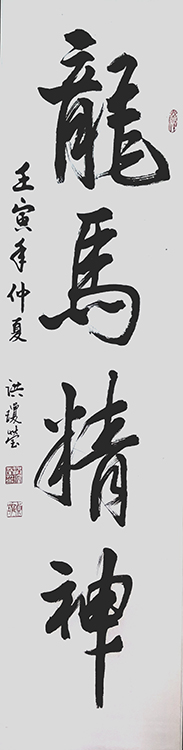 龍馬精神
壬寅年仲夏
洪瓊瑩